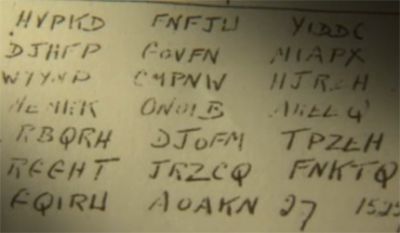 HVPKD FNFJW YIDDC
DJHFP GOVFN MIAPX
WYYNP CMPNW HJRZH
NEMKK ONOIB AKEEQ
RBQRH DJOFM TPZEH
RGGHT JRZCQ FNKTQ
FQIRW AOAKN 27 1525